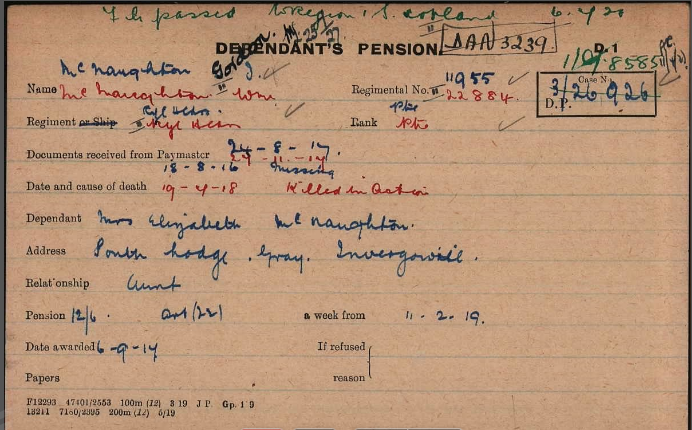 passed to Region 1, Scotland 6.4.20
DEPENDANT'S PENSION. DAN 3239. D.1
McNaughton Gordon. J. 11955
Name McNaughton " Wm Regimental No. " 22884.
Ryl Scots. Pte Case No.
Regiment or Ship " Ryl Scots Rank Pte D.P. 3/26926
Documents received from Paymaster 24-8-17.
18-8-16 Missing
Date and cause of death 19-4-18 Killed in Action
Dependant Mrs Elizabeth McNaughton.
Address South Lodge, Gray. Invergowrie.
Relationship Aunt
Pension 12/6. Art (22) a week from 11-2-19.
Date awarded 6-9-17 If refused
Papers reason
F12293 47401/2553 100m (12) 3 19 J P. Gp. 1 9
13211 7160/2395 200m (12) 5/19